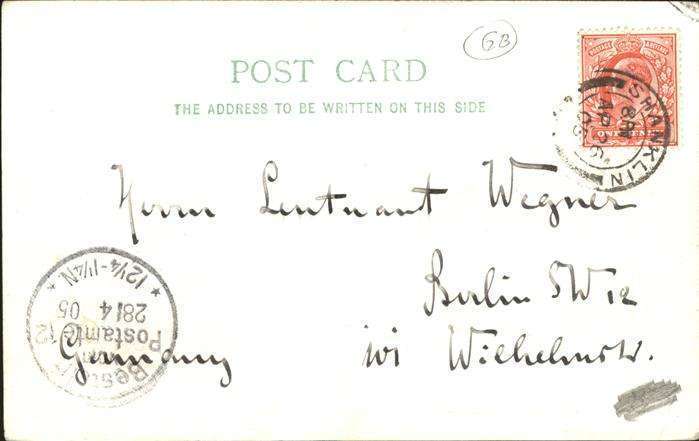 GB
POST CARD
THE ADDRESS TO BE WRITTEN ON THIS SIDE
POSTAGE REVENUE
ONE PENNY
SHANKLIN
8 AM
AP 26
05
Herrn Leutnant Wegner
Berlin SW 12
101 Wilhelmstr.
Germany
Bestellt
Postamte 12
28/4 05
* 12¼-1¼N *